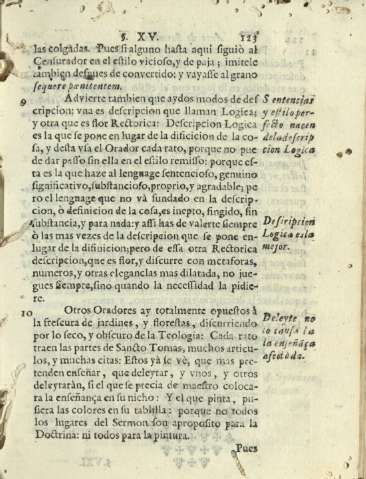 §. XV. 123
las colgadas. Pues si alguno hasta aqui siguiò al
Censurador en el estilo vicioso, y de paja; imitele
tambien despues de convertido: y vayasse al grano
sequere pœnitentem.
9 Advierte tambien que ay dos modos de des-
cripcion: vna es descripcion que llaman Logica;
y otra que es Rectorica: Descripcion Logica
es la que se pone en lugar de la difinicion de la co-
sa, y desta vsa el Orador cada rato, porque no pue
de dar passo sin ella en el estilo remisso: porque es-
ta es la que haze al lenguage sentencioso, genuino
significativo, substancioso, proprio, y agradable; pe
ro el lenguage que no và fundado en la descrip-
cion, ò definicion de la cosa, es inepto, fingido, sin
substancia, y para nada: y assi has de valerte siempre
ò las mas vezes de la descripcion que se pone en-
lugar de la difinicion; pero de essa otra Rectorica
descripcion, que es flor, y discurre con metaforas,
numeros, y otras elegancias mas dilatada, no jue-
gues siempre, sino quando la necessidad la pidie-
re.
10 Otros Oradores ay totalmente opuestos à
la frescura de jardines, y florestas, discurriendo
por lo seco, y obscuro de la Teologia: Cada rato
traen las partes de Sancto Tomas, muchos articu-
los, y muchas citas: Estos yà se vè, que mas pre-
tenden enseñar, que deleytar, y vnos, y otros
deleytaràn, si el que se precia de maestro coloca-
ra la enseñança en su nicho: Y el que pinta, pu-
siera las colores en su tablilla: porque no todos
los lugares del Sermon son aproposito para la
Doctrina: ni todos para la pintura.
Pues
Sentenciar
y estilo per-
fecto nacen
de la descrip
cion Logica
Descripcion
Logica es la
mejor.
Deleyte, no
lo causa la
la enseñaça
afectada.